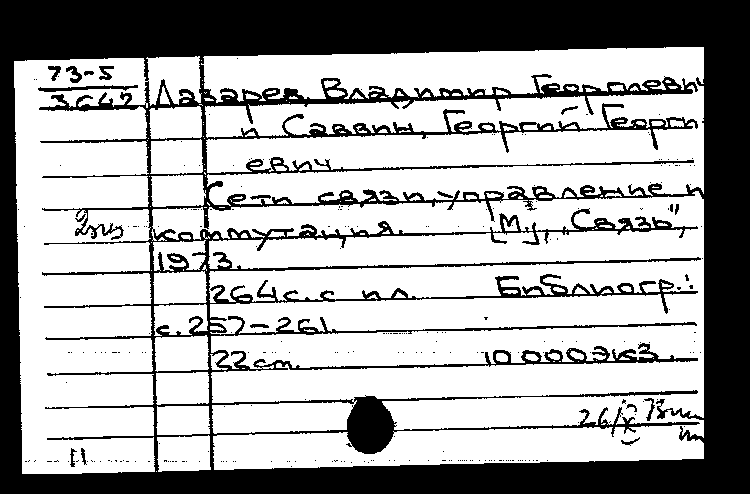 73-5
3645 Лазарев, Владимир Георгиевич
и Саввин, Георгий Георги-
евич.
Сети связи, управление и
2 экз коммутация. [М.], „Связь",
1973.
264 с. с ил. Библиогр.:
с. 257-261.
22 см. 10 000 экз.
26/X 73
11